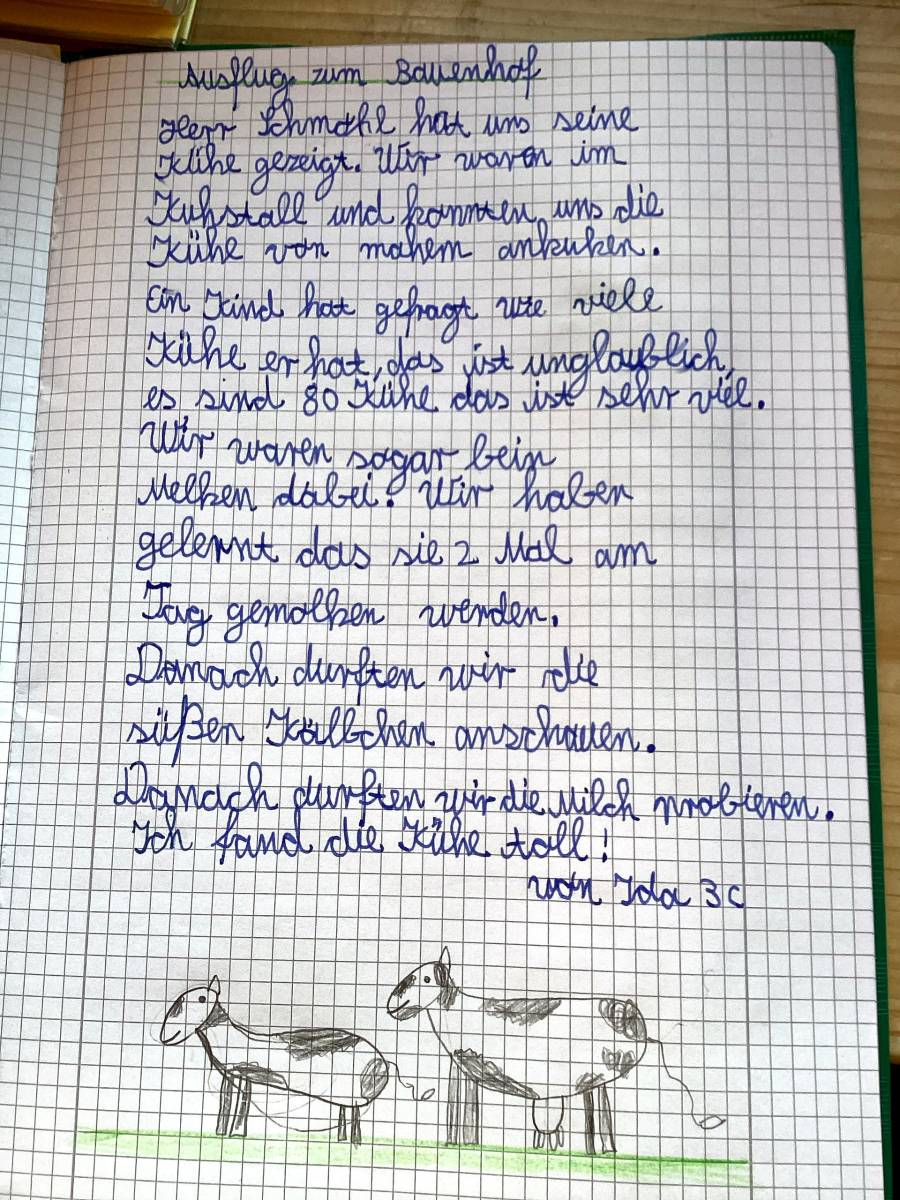 Ausflug zum Bauenhof
Herr Schmahl hat uns seine
Kühe gezeigt. Wir waren im
Kuhstall und konnten uns die
Kühe von mahem ankuken.
Ein Kind hat gefragt wie viele
Kühe er hat, das ist unglaublich,
es sind 80 Kühe das ist sehr viel.
Wir waren sogar bein
Melken dabei. Wir haben
gelernt das sie 2 Mal am
Tag gemolken werden.
Danach durften wir die
süßen Kälbchen anschauen.
Danach durften wir die Milch probieren.
Ich fand die Kühe toll!
von Ida 3c